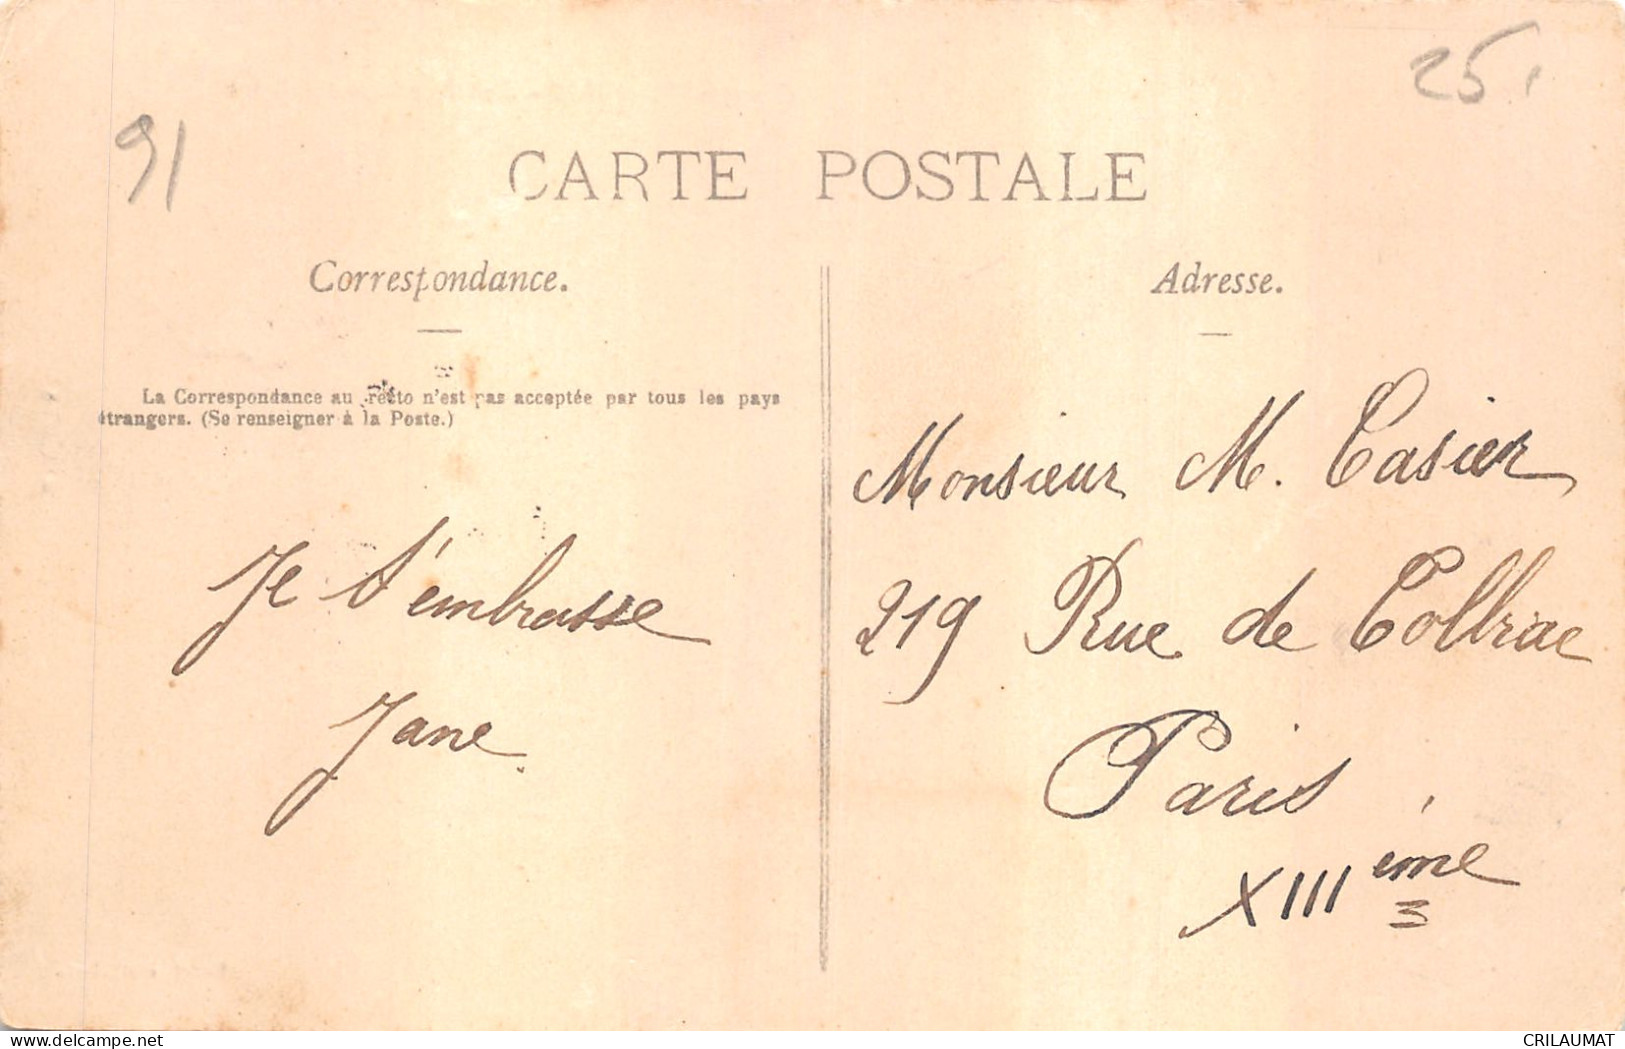 91
25
CARTE POSTALE
Correspondance.
Adresse.
La Correspondance au recto n'est pas acceptée par tous les pays
étrangers. (Se renseigner à la Poste.)
Monsieur M. Casier
219 Rue de Tolbiac
Paris
XIIIème
Je t'embrasse
Jane.
delcampe.net
CRILAUMAT